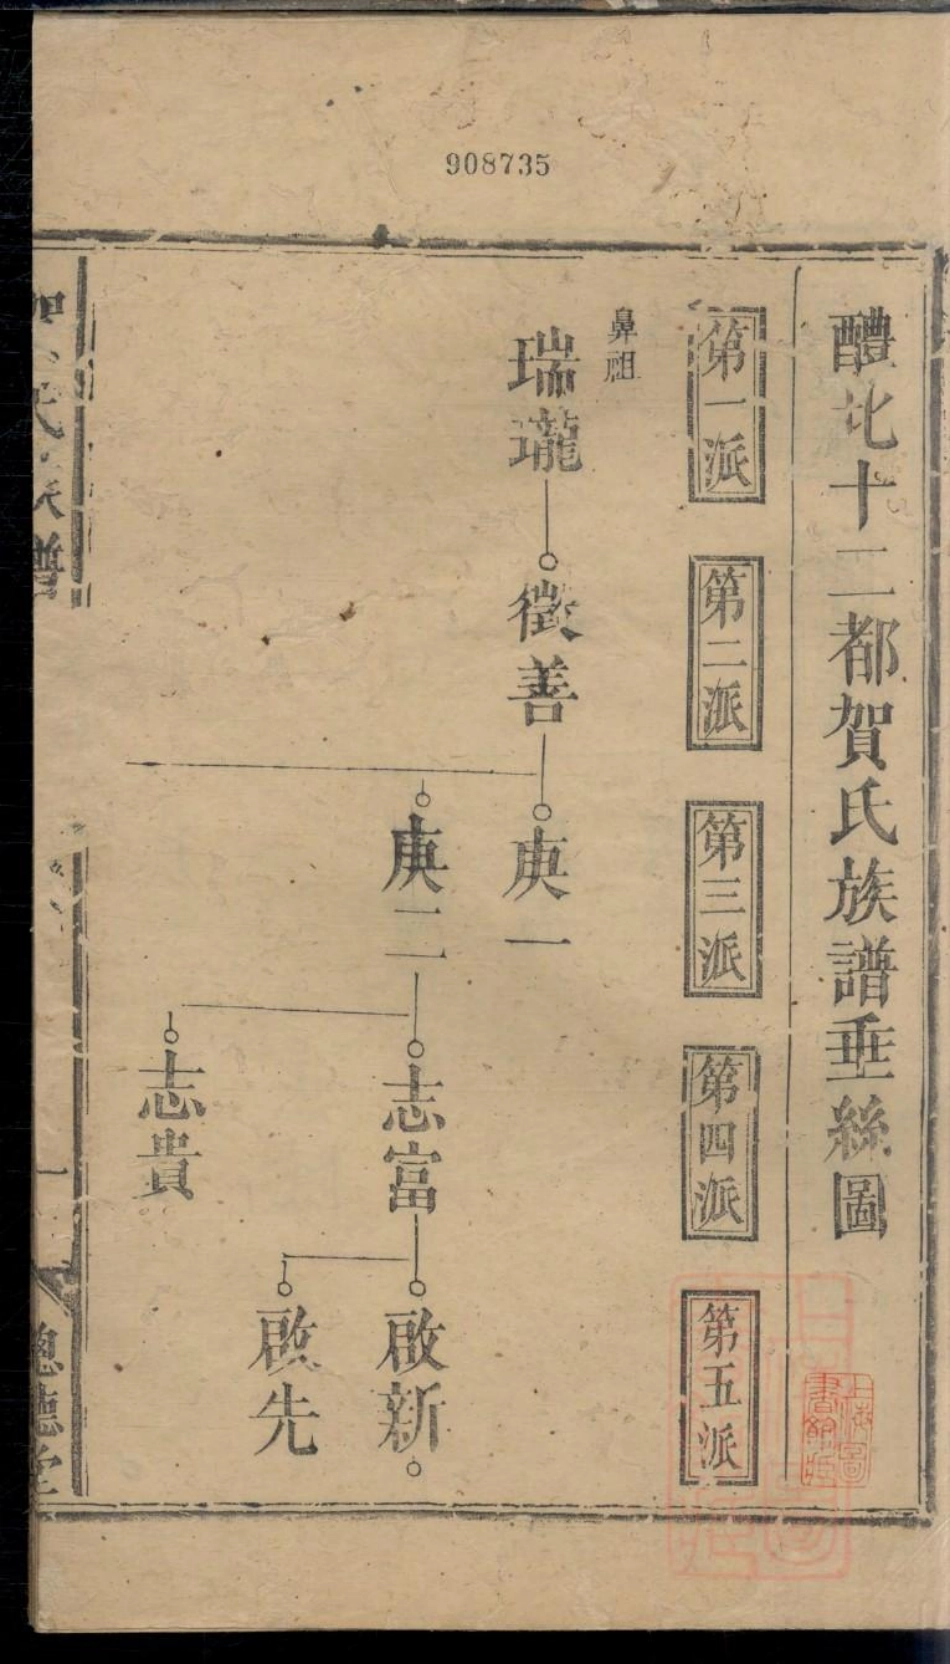 908735
醴北十二都賀氏族譜垂絲圖
第一派
第二派
第三派
第四派
第五派
鼻祖
瑞瓏
徵善
庚一
庚二
志富
志貴
啟新
啟先
氏族譜
一
德堂